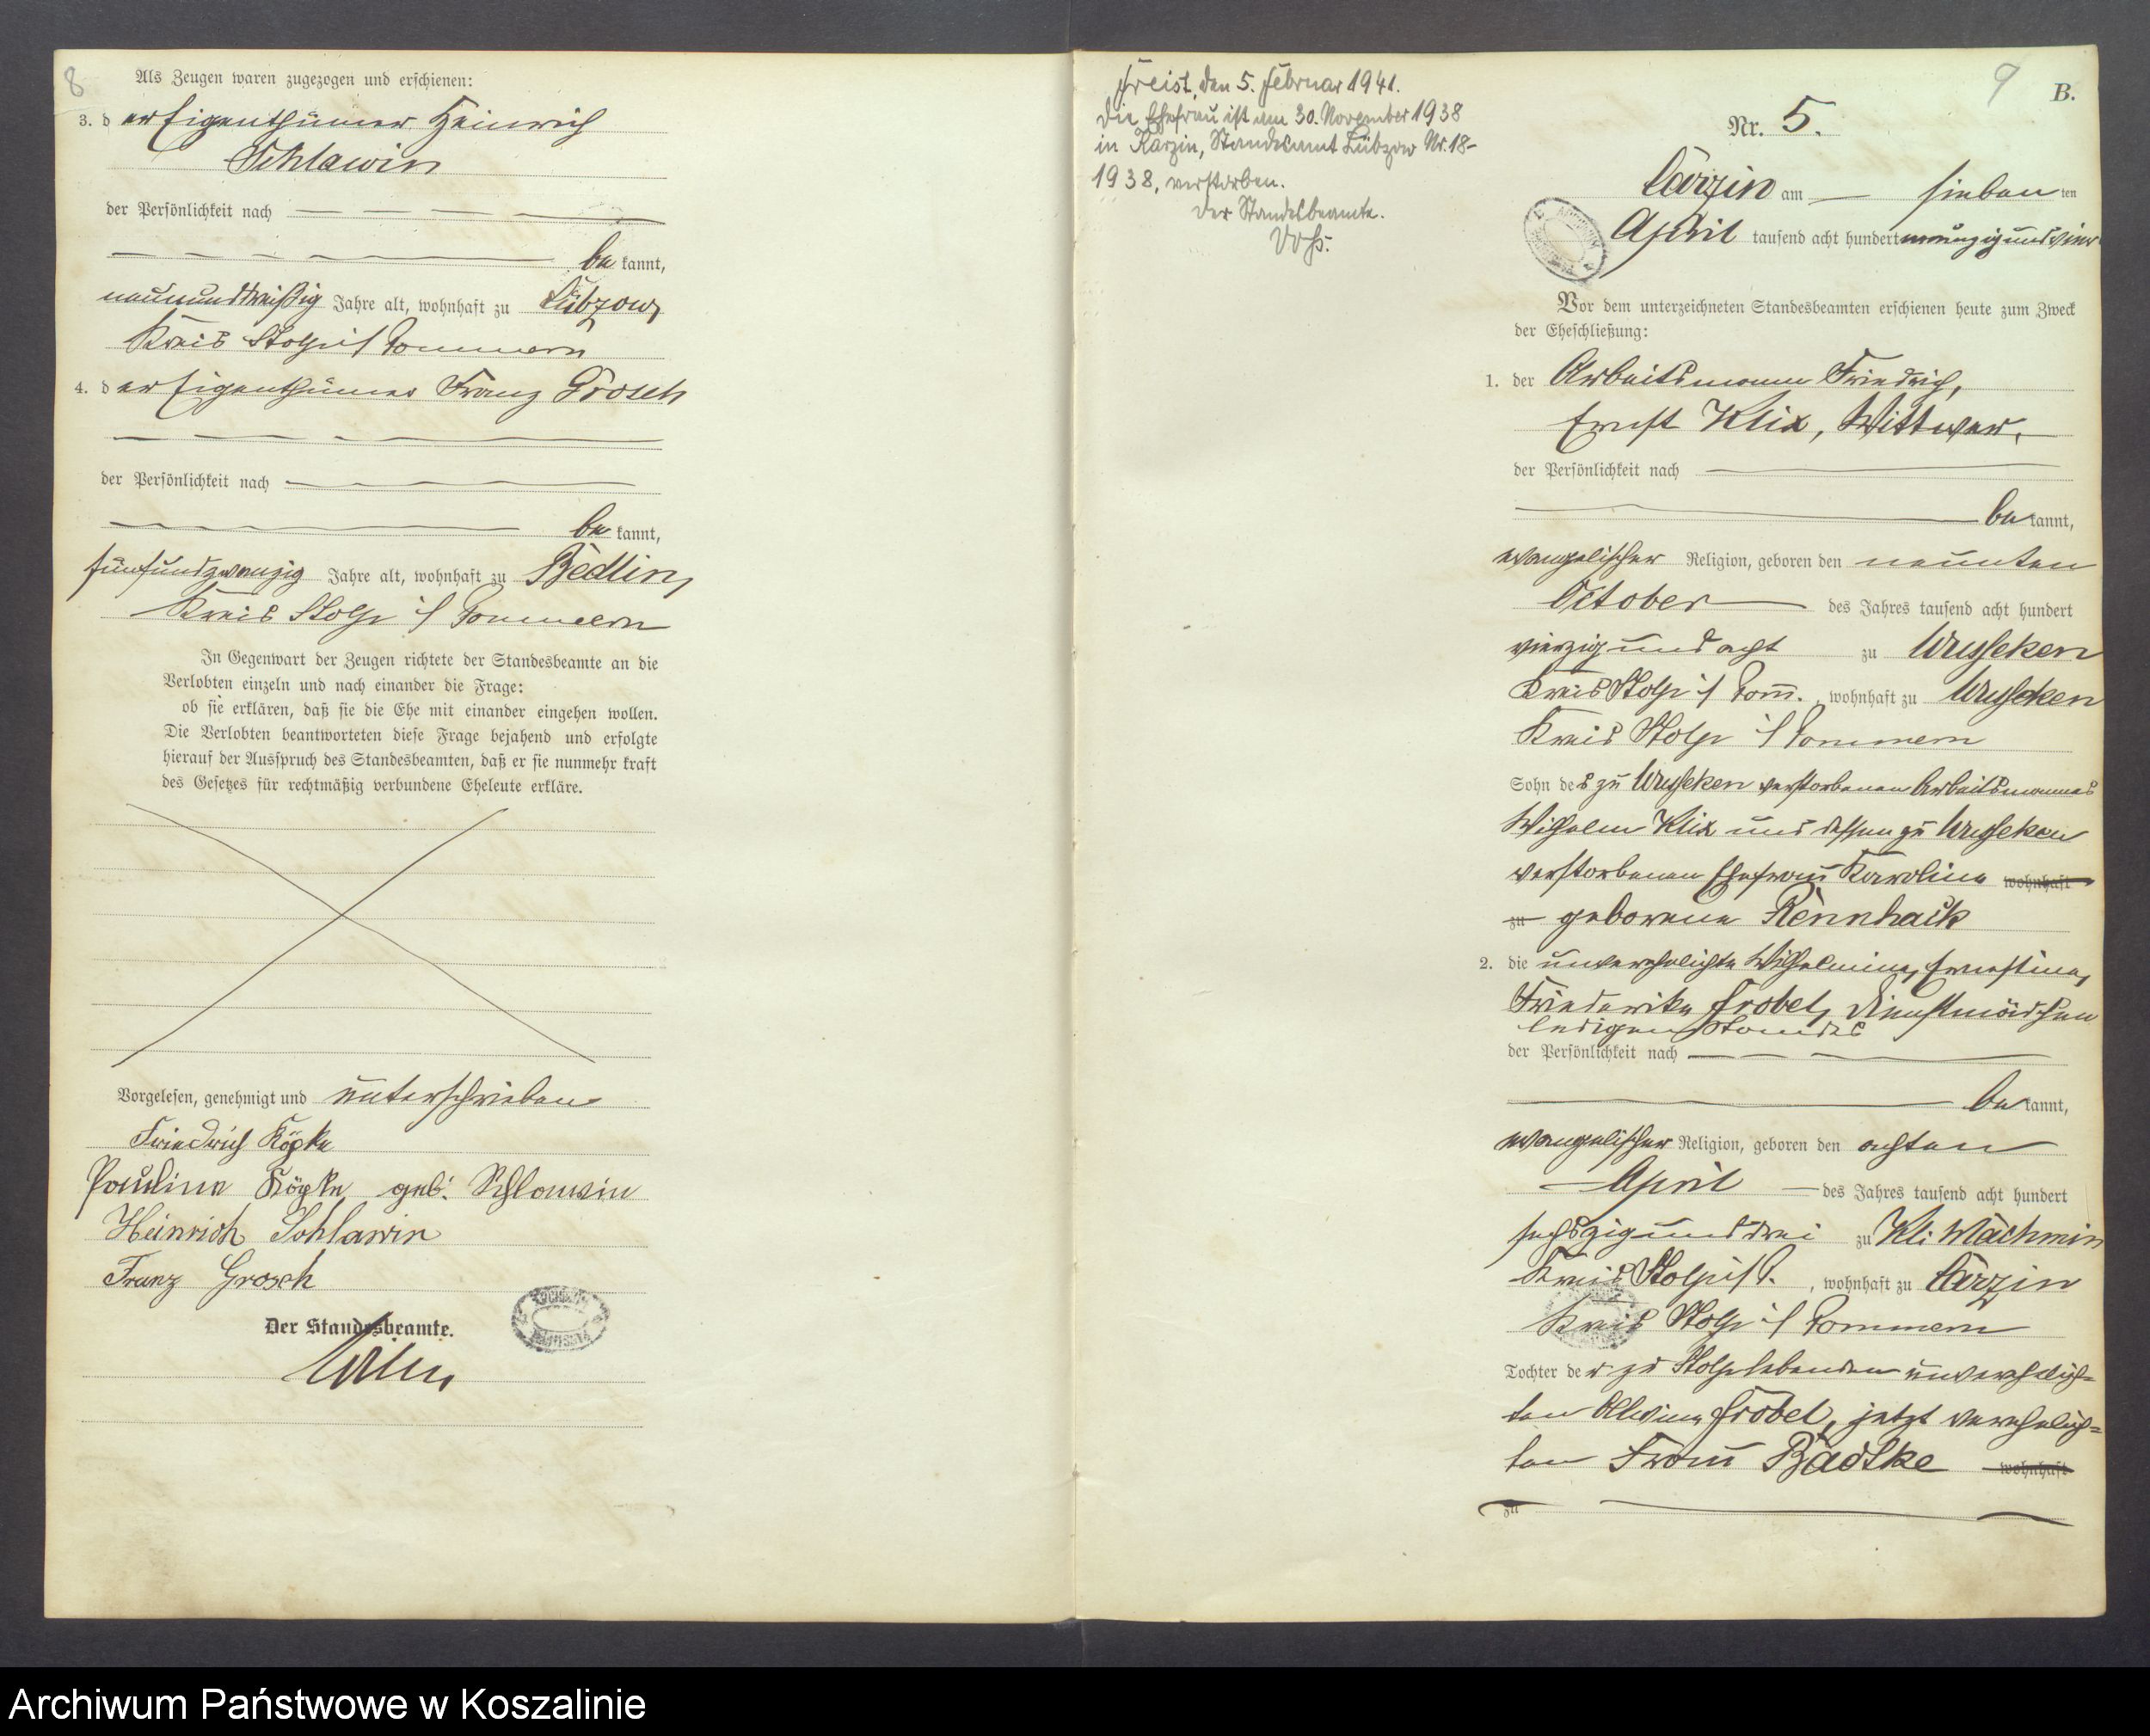 8
Als Zeugen waren zugezogen und erschienen:
3. der Eigenthümer Heinrich
Schlawin
der Persönlichkeit nach
be kannt,
neununddreißig Jahre alt, wohnhaft zu Lübzow,
Kreis Stolp i/ Pommern
4. der Eigenthümer Franz Grosch
der Persönlichkeit nach
be kannt,
fünfundzwanzig Jahre alt, wohnhaft zu Bedlin,
Kreis Stolp i/ Pommern
In Gegenwart der Zeugen richtete der Standesbeamte an die
Verlobten einzeln und nach einander die Frage:
ob sie erklären, daß sie die Ehe mit einander eingehen wollen.
Die Verlobten beantworteten diese Frage bejahend und erfolgte
hierauf der Ausspruch des Standesbeamten, daß er sie nunmehr kraft
des Gesetzes für rechtmäßig verbundene Eheleute erkläre.
Vorgelesen, genehmigt und unterschrieben
Friedrich Köpke
Pauline Köpke geb. Schlawin
Heinrich Schlawin
Franz Grosch
Der Standesbeamte.
Freist, den 5. Februar 1941.
Die Ehefrau ist am 30. November 1938
in Karzin, Standesamt Lübzow Nr. 18-
1938, verstorben.
Der Standesbeamte.
Voß.
9
B.
Nr. 5.
Carzin am sieben ten
April tausend acht hundert neunzig und vier
Vor dem unterzeichneten Standesbeamten erschienen heute zum Zweck
der Eheschließung:
1. der Arbeitsmann Friedrich,
Ernst Klix, Wittwer,
der Persönlichkeit nach
be kannt,
evangelischer Religion, geboren den neunten
October des Jahres tausend acht hundert
vierzig und acht zu
Kreis Stolp i/ Pom., wohnhaft zu
Kreis Stolp i/ Pommern
Sohn des zu verstorbenen Arbeitsmannes
Wilhelm Klix und dessen zu
verstorbenen Ehefrau Karoline wohnhaft
zu geborene Rennhack
2. die unverehelichte Wilhelmine, Ernestine,
Friederike Frobel, Dienstmädchen
ledigen Standes
der Persönlichkeit nach
be kannt,
evangelischer Religion, geboren den achten
April des Jahres tausend acht hundert
sechszig und drei zu Kl: Machmin
Kreis Stolp i/ P., wohnhaft zu Carzin
Kreis Stolp i/ Pommern
Tochter der zu Stolp lebenden unverehelich=
ten Alwine Frobel, jetzt verehelich=
ten Frau Badtke wohnhaft
zu
Archiwum Państwowe w Koszalinie